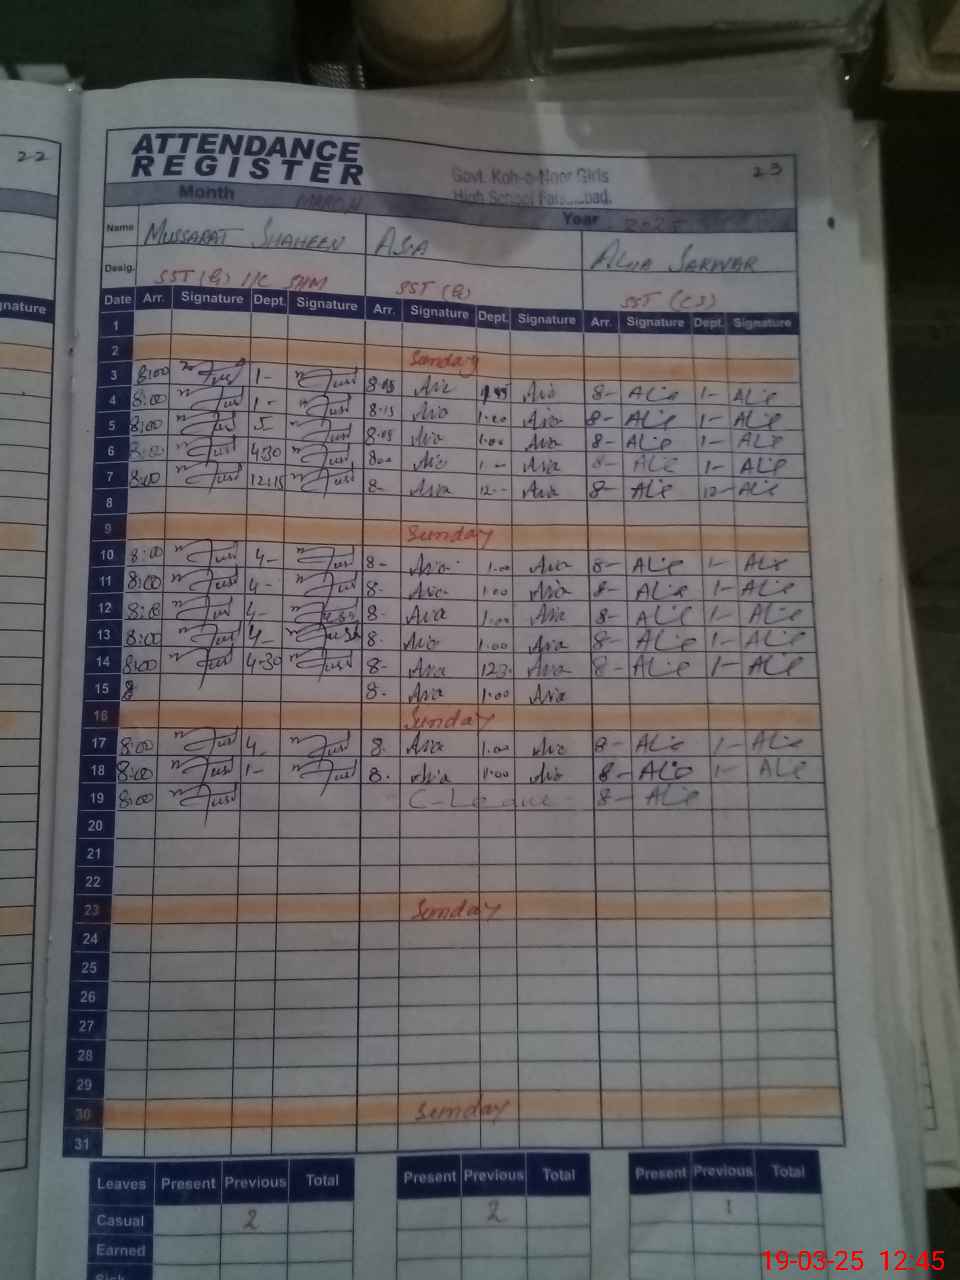 22
ATTENDANCE
REGISTER
Govt. Koh-e-Noor Girls
High School Faisalabad.
23
Month MARCH Year 2025
Name MUSSARAT SHAHEEN ASIA ALIA SARWAR
Desig. SST (G) I/C SHM SST (G) SST (CS)
nature
Date Arr. Signature Dept. Signature Arr. Signature Dept. Signature Arr. Signature Dept. Signature
1
2 Sunday
3 8:00 1- 8-05 Asia Asia 8- ALie 1- ALie
4 8:00 1- 8-15 Asia 1-00 Asia 8- ALie 1- ALie
5 8:00 5 8-05 Asia 1-00 Asia 8- ALie 1- ALie
6 8:00 4-30 800 Asia 1- Asia 8- ALie 1- ALie
7 8:00 12:15 8- Asia 12-- Asia 8- ALie 12- ALie
8
9 Sunday
10 8:00 4- 8- Asia 1.00 Asia 8- ALie 1- ALie
11 8:00 4- 8- Asia 1.00 Asia 8- ALie 1- ALie
12 8:00 4- 8- Asia 1.00 Asia 8- ALie 1- ALie
13 8:00 4- 8- Asia 1.00 Asia 8- ALie 1- ALie
14 8:00 4-30 8- Asia Asia 8- ALie 1- ALie
15 8 8- Asia 1.00 Asia
16 Sunday
17 8:00 4- 8- Asia 1.00 Asia 8- ALie 1- ALie
18 8:00 1- 8- Asia 1.00 Asia 8- ALie 1- ALie
19 8:00 C-Leave 8- ALie
20
21
22
23 Sunday
24
25
26
27
28
29
30 Sunday
31
Leaves Present Previous Total Present Previous Total Present Previous Total
Casual 2 2 1
Earned
Sick
19-03-25 12:45